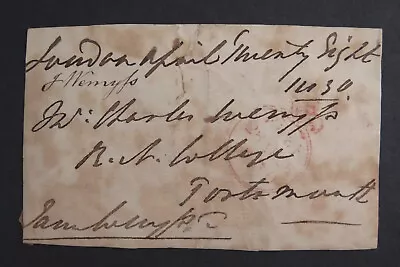 London April Twenty Eight
1830
J Wemyſs
Mr: Charles Wemyſs
R. N. College
Portsmouth
Jam Wemyſs